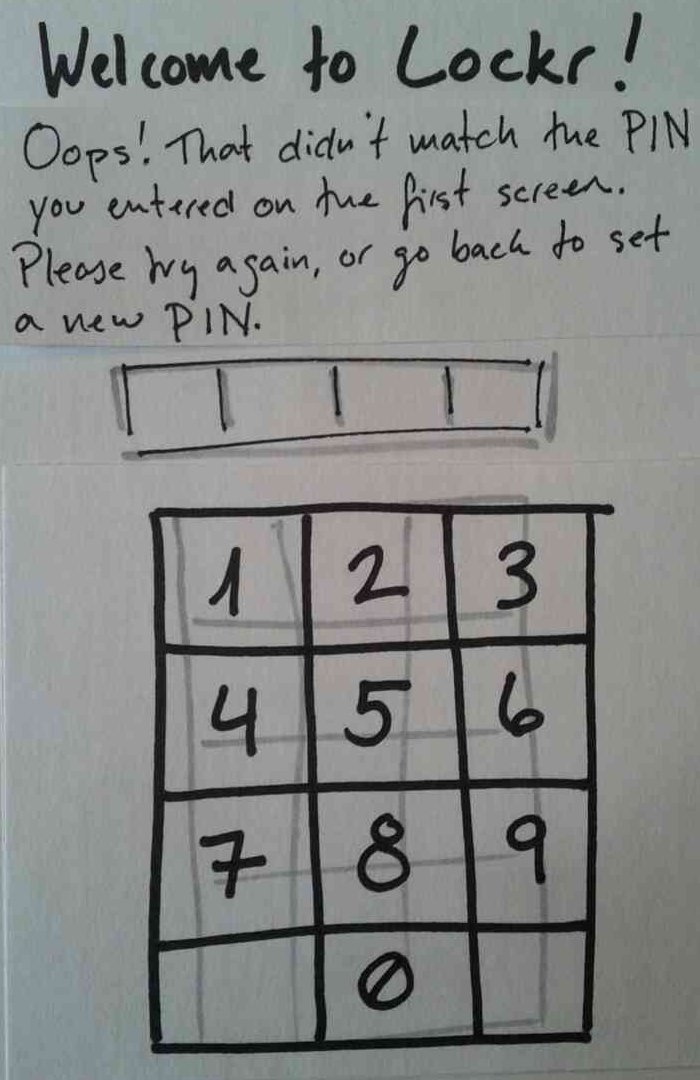 Welcome to Lockr!
Oops! That didn't match the PIN
you entered on the first screen.
Please try again, or go back to set
a new PIN.
1 2 3
4 5 6
7 8 9
0